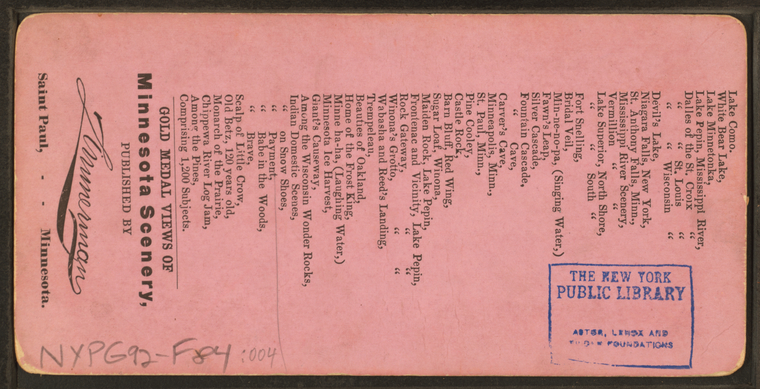 Lake Como,
White Bear Lake,
Lake Minnetonka,
Lake Pepin, Mississippi River,
Dalles of the St. Croix "
" " St. Louis "
" " Wisconsin "
Devil's Lake,
Niagara Falls, New York,
St. Anthony Falls, Minn.,
Mississippi River Scenery,
Vermillion " "
Lake Superior, North Shore,
" " South "
Fort Snelling,
Bridal Veil,
Min-ne-no-pa, (Singing Water,)
Fawn's Leap,
Silver Cascade,
Fountain Cascade,
" Cave,
Carver's Cave,
Minneapolis, Minn.,
St. Paul, Minn.,
Pine Cooley,
Castle Rock,
Barn Bluff, Red Wing,
Sugar Loaf, Winona,
Maiden Rock, Lake Pepin,
Frontenac and Vicinity, Lake Pepin,
Rock Gateway, " "
Winona's Grotto, " "
Wabasha and Reed's Landing,
Trempeleau,
Beauties of Oakland,
Home of the Frost King,
Minne-ha-ha, (Laughing Water,)
Minnesota Ice Harvest,
Giant's Causeway,
Among the Wisconsin Wonder Rocks,
Indian Domestic Scenes,
" on Snow Shoes,
" Payment,
" Babe in the Woods,
" Brave,
Scalp of Little Crow,
Old Betz, 120 years old,
Monarch of the Prairie,
Chippewa River Log Jam,
Among the Pines,
Comprising 1,200 Subjects.
GOLD MEDAL VIEWS OF
Minnesota Scenery,
PUBLISHED BY
Zimmerman
Saint Paul, - - Minnesota.
THE NEW YORK
PUBLIC LIBRARY
ASTOR, LENOX AND
TILDEN FOUNDATIONS
NYPG92-F84 :004